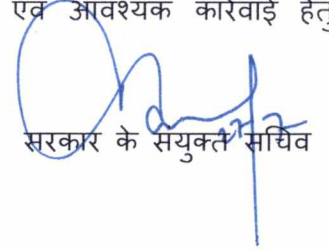 एवं आवश्यक कार्रवाई हेतु
सरकार के संयुक्त सचिव